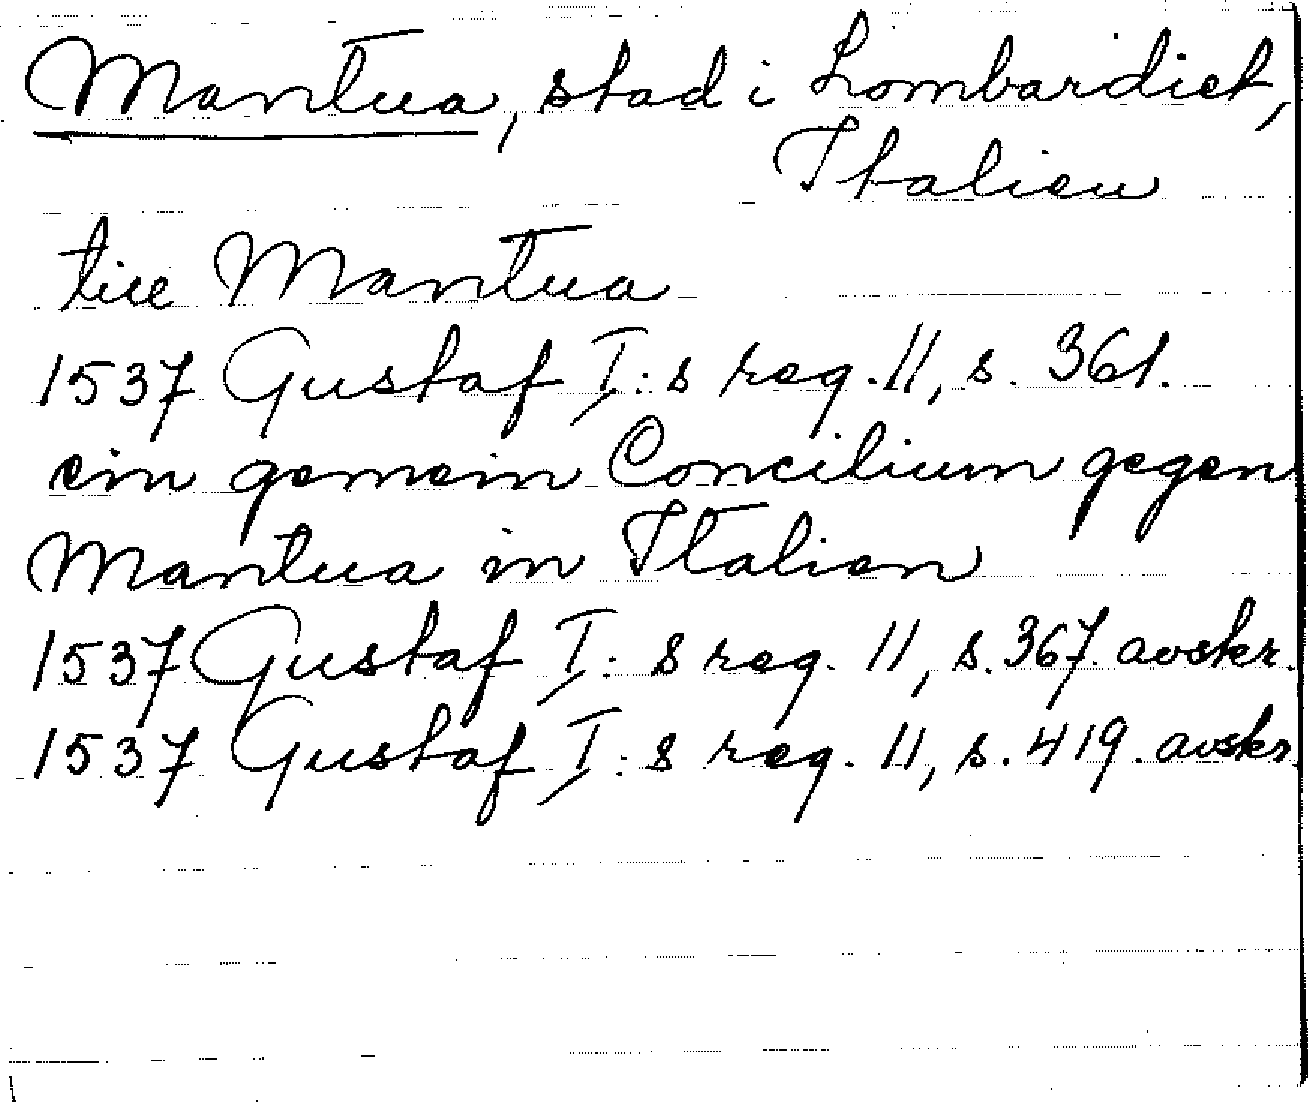 Mantua, stad i Lombardiet,
Italien
till Mantua
1537 Gustaf I:s reg. 11, s. 361.
ein gemein Concilium gegen
Mantua in Italien
1537 Gustaf I:s reg. 11, s. 367. avskr.
1537 Gustaf I:s reg. 11, s. 419. avskr.